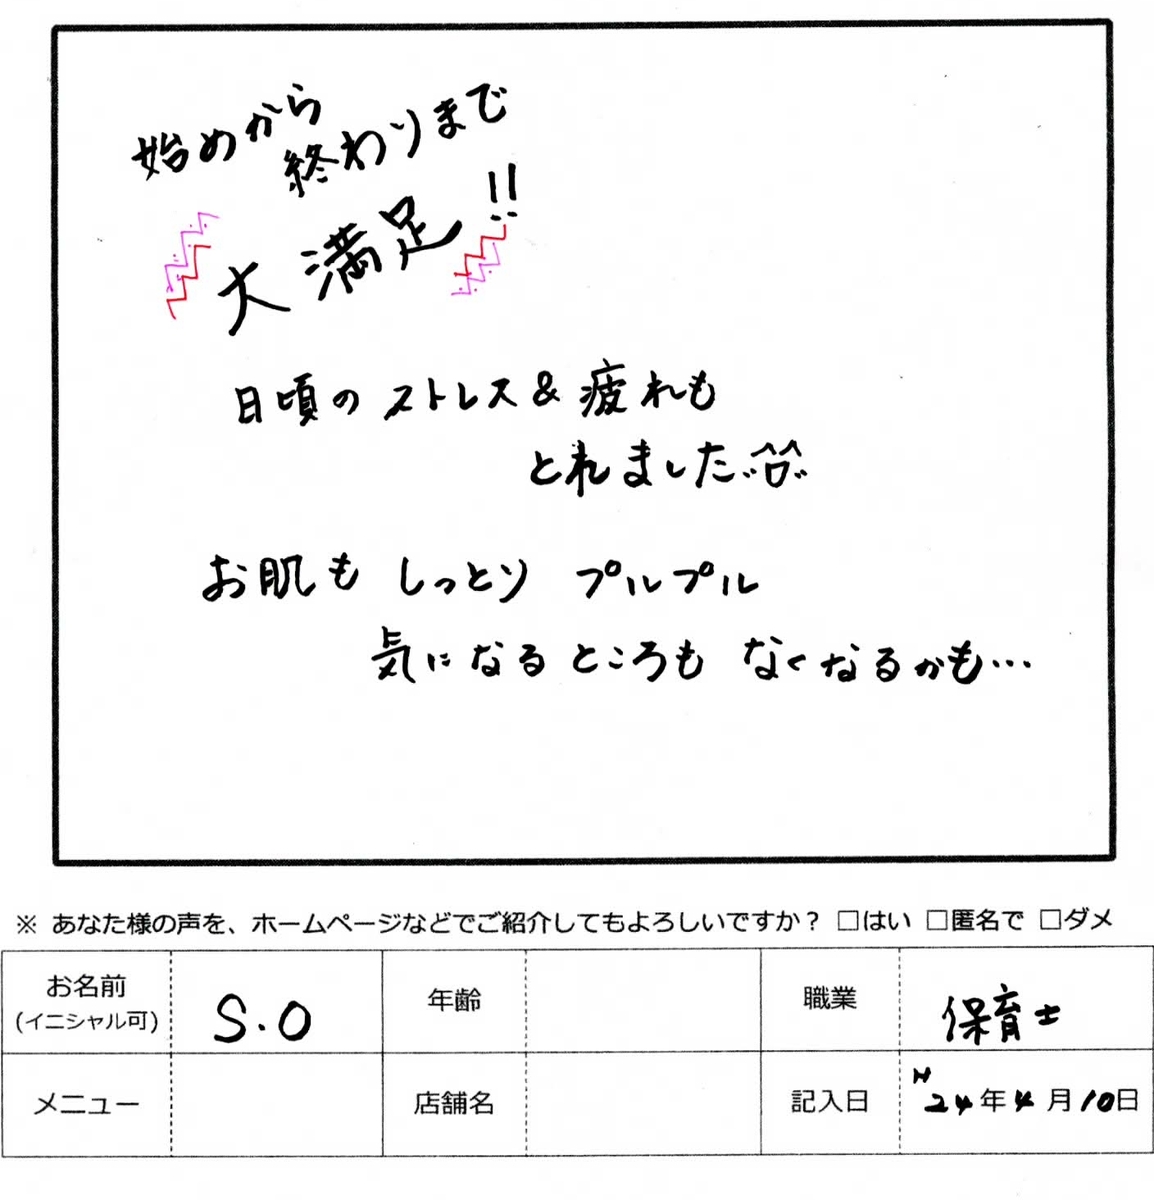 始めから
終わりまで
大満足!!
日頃のストレス&疲れも
とれました
お肌も しっとり プルプル
気になるところも なくなるかも…
※ あなた様の声を、ホームページなどでご紹介してもよろしいですか? □はい □匿名で □ダメ
お名前
(イニシャル可)
S.O
年齢
職業
保育士
メニュー
店舗名
記入日
H24年4月10日